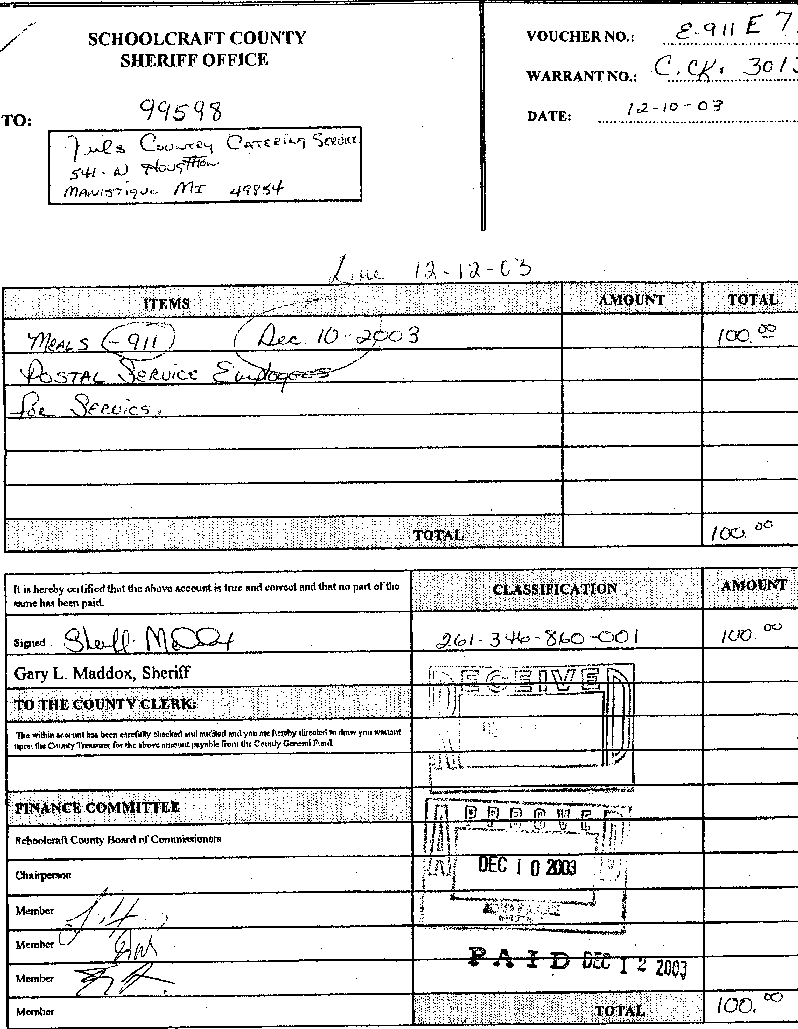 SCHOOLCRAFT COUNTY
SHERIFF OFFICE
VOUCHER NO.: E-911 E 7
WARRANT NO.: C.CK. 3013
DATE: 12-10-03
TO:
99598
Country Catering Service
541-N Houghton
Manistique MI 49854
12-12-03
ITEMS AMOUNT TOTAL
Meals -911 Dec. 10-2003 100.00
Postal Service Employees
for Service.
TOTAL 100.00
It is hereby certified that the above account is true and correct and that no part of the
same has been paid.
CLASSIFICATION AMOUNT
Signed
261-346-860-001 100.00
Gary L. Maddox, Sheriff
RECEIVED
TO THE COUNTY CLERK:
The within account has been carefully checked and audited and you are hereby directed to draw you warrant
upon the County Treasurer for the above amount payable from the County General Fund.
FINANCE COMMITTEE
APPROVED
Schoolcraft County Board of Commissioners
DEC 10 2003
Chairperson
Member
Member
PAID DEC 12 2003
Member
Member
TOTAL 100.00